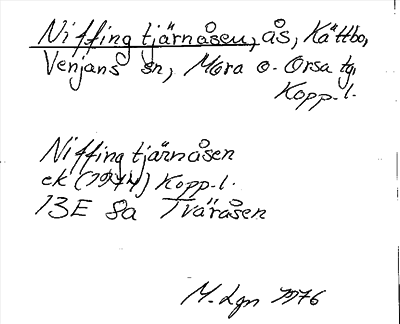 Niffingtjärnåsen, ås, Kättbo,
Venjans sn, Mora o. Orsa tg,
Kopp. l.
Niffingtjärnåsen
ek (1974) Kopp. l.
13E 8a Tväråsen
M. Lgn 1976